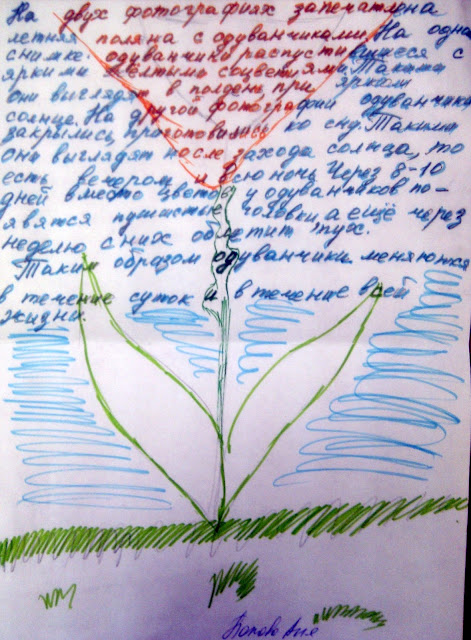 На двух фотографиях запечатлена
летняя поляна с одуванчиками. На одном
снимке одуванчики распустившиеся с
яркими жёлтыми соцветиями. Такими
они выглядят в полдень при ярком
солнце. На другой фотографии одуванчики
закрылись, приготовились ко сну. Такими
они выглядят после захода солнца, то
есть вечером и всю ночь. Через 8-10
дней вместо цветов у одуванчиков по-
явятся пушистые головки, а ещё через
неделю с них облетит пух.
Таким образом одуванчики меняются
в течение суток и в течение всей
жизни.
Попова